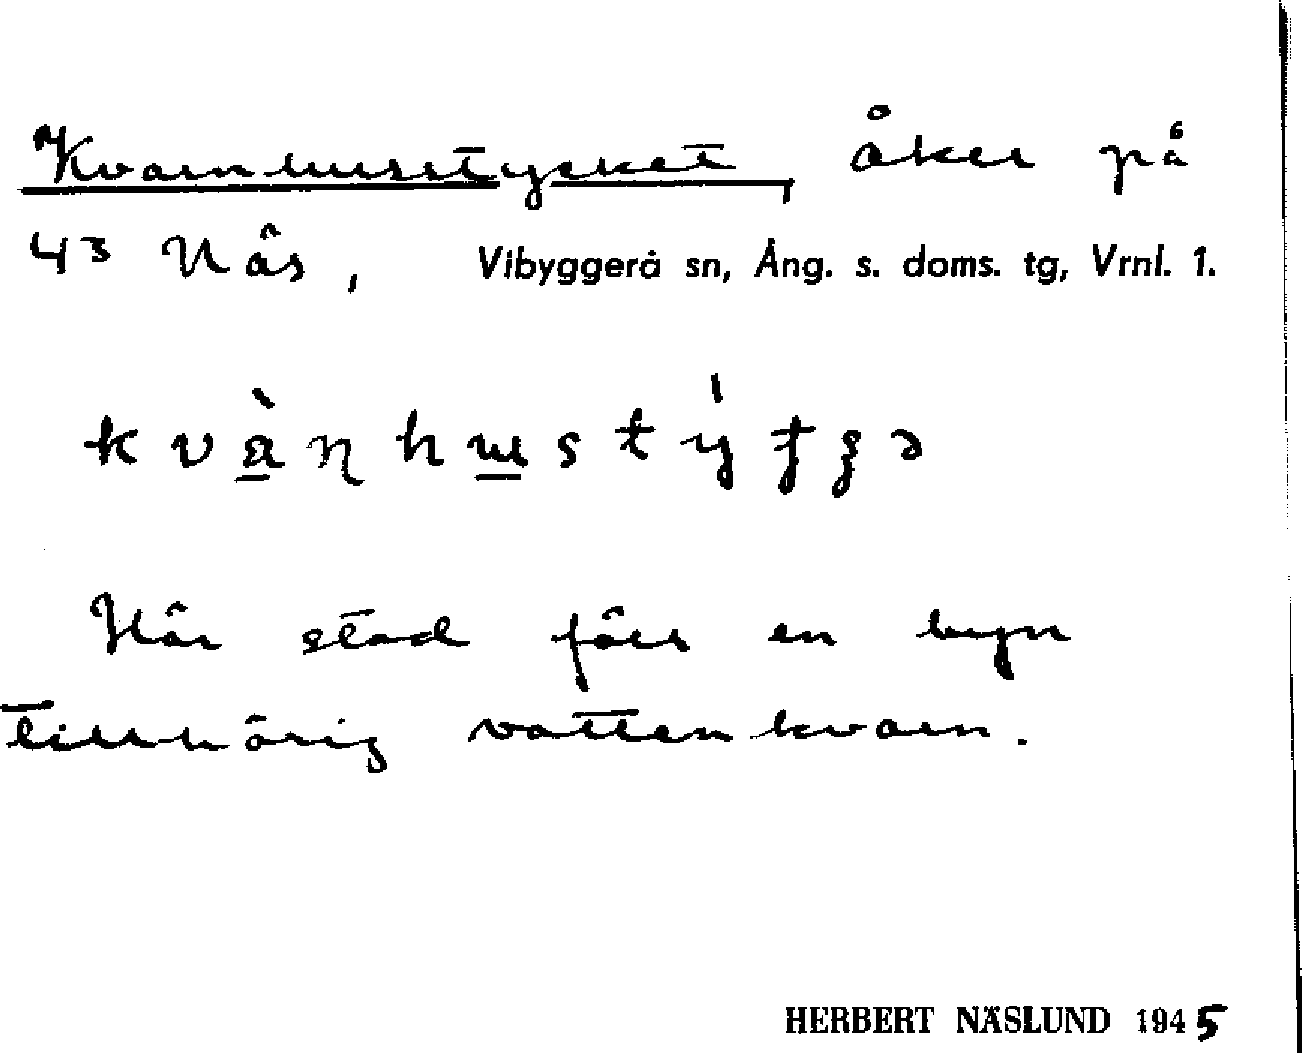 Kvarnhusstycket, åker på
43 Näs, Vibyggerå sn, Ång. s. doms. tg, Vrnl. 1.
Här stod förr en byn
tillhörig vattenkvarn.
HERBERT NÄSLUND 1945